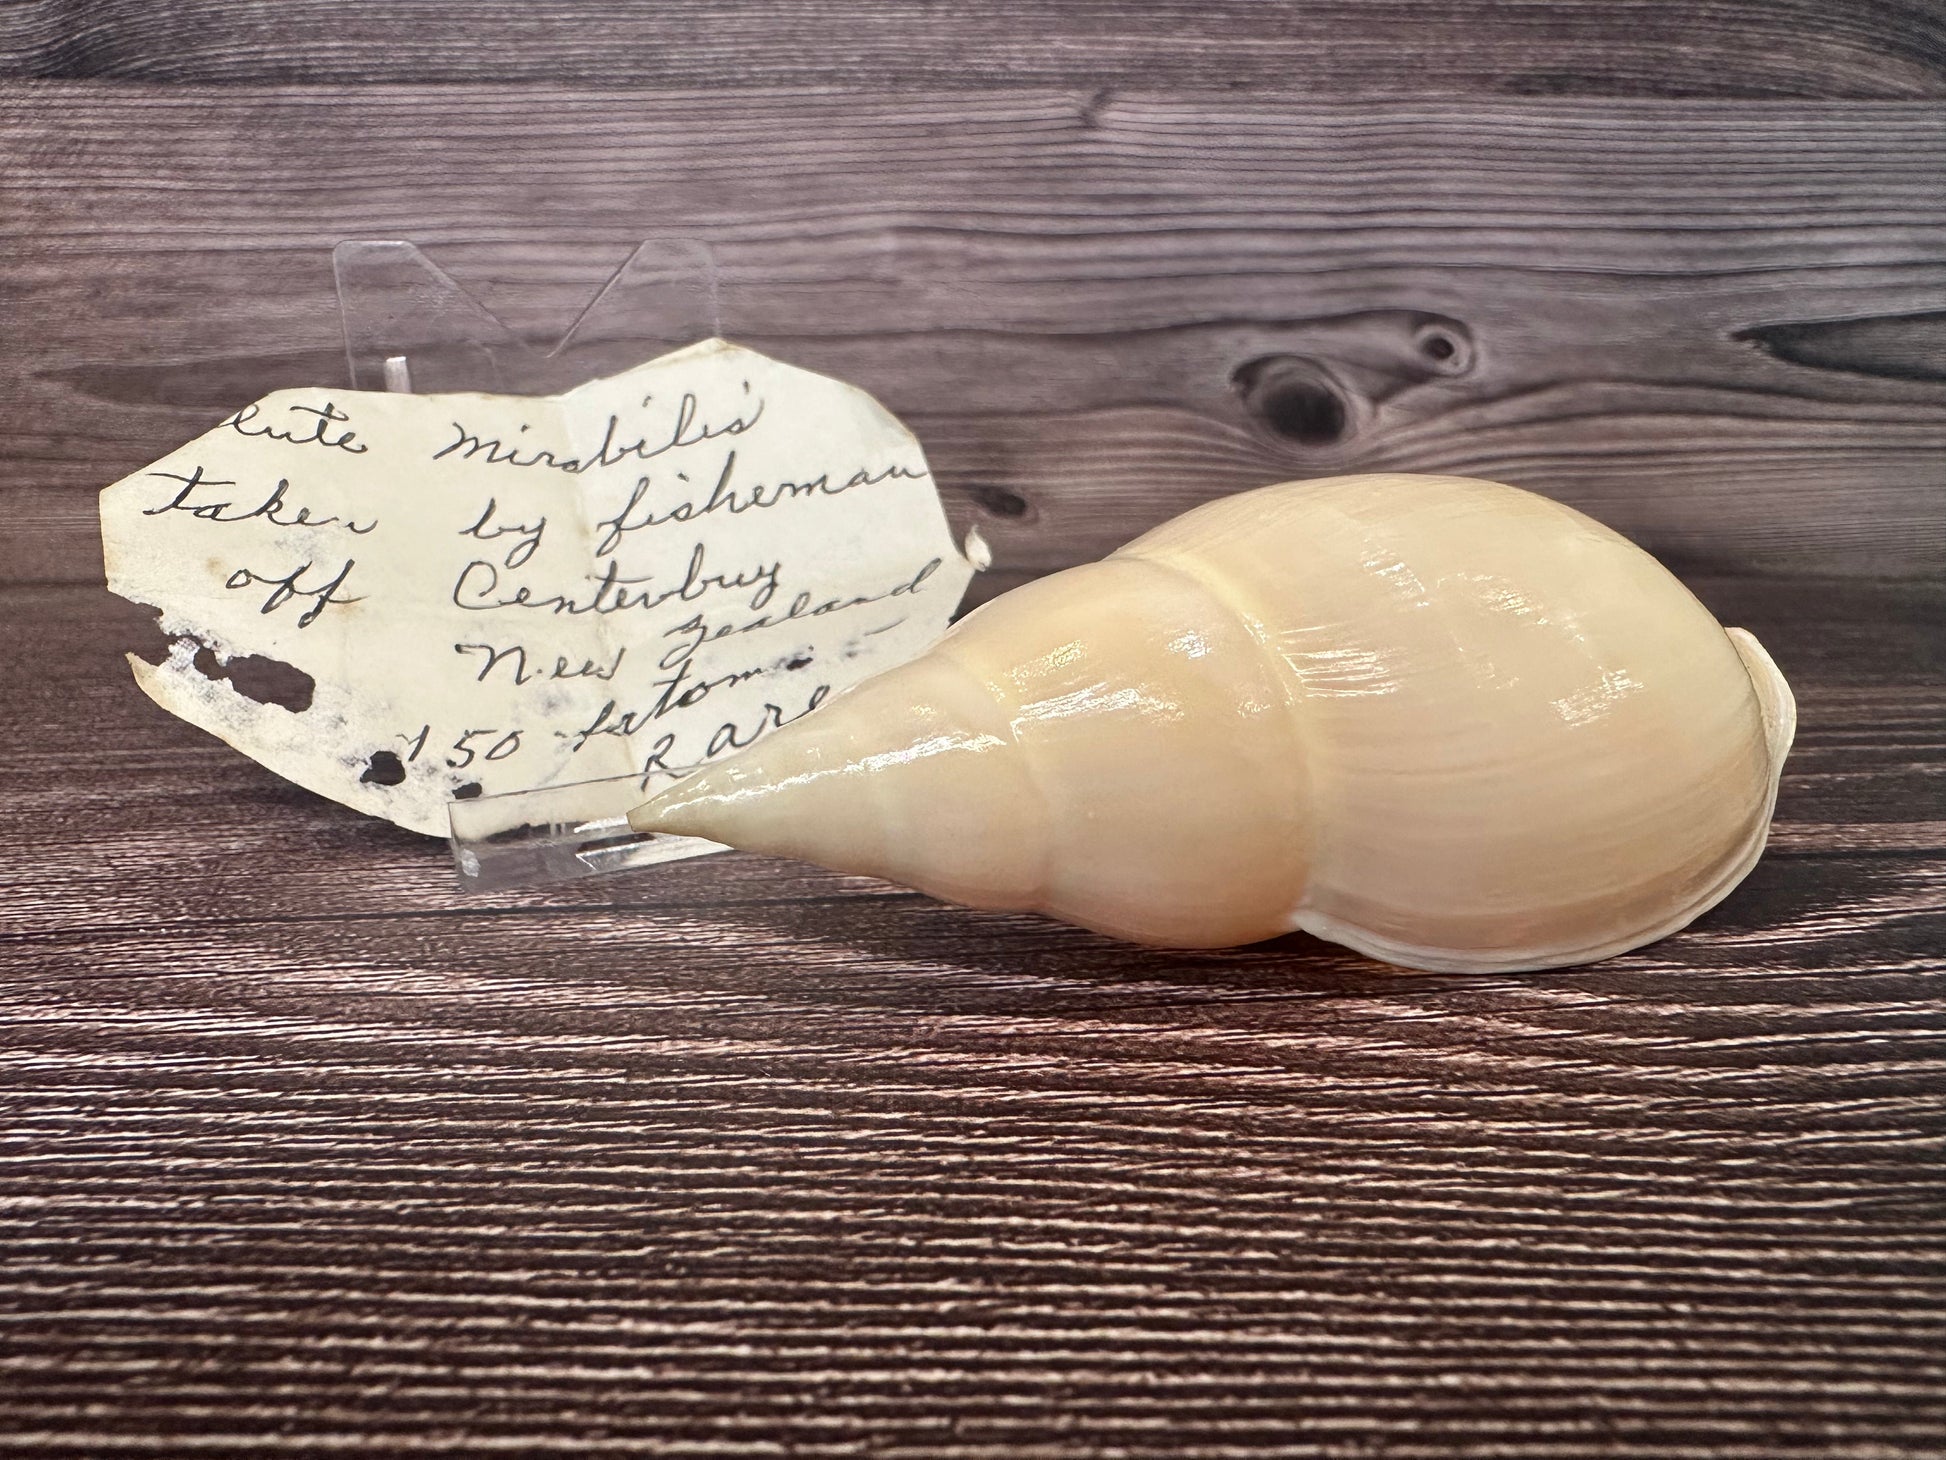 lute Mirabilis
taken by fisheman
off Centerbuy
New Zealand
150 fatom
Rare